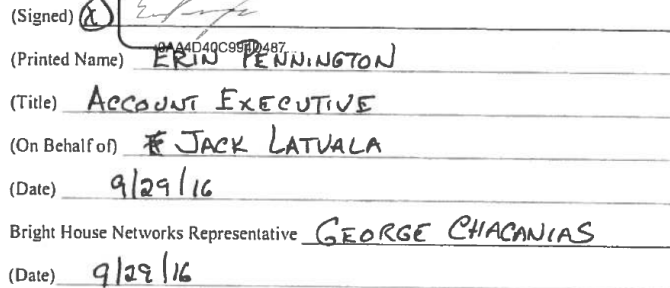 (Signed) (X)
(Printed Name) ERIN PENNINGTON
(Title) ACCOUNT EXECUTIVE
(On Behalf of) JACK LATVALA
(Date) 9/29/16
Bright House Networks Representative GEORGE CHACANIAS
(Date) 9/29/16